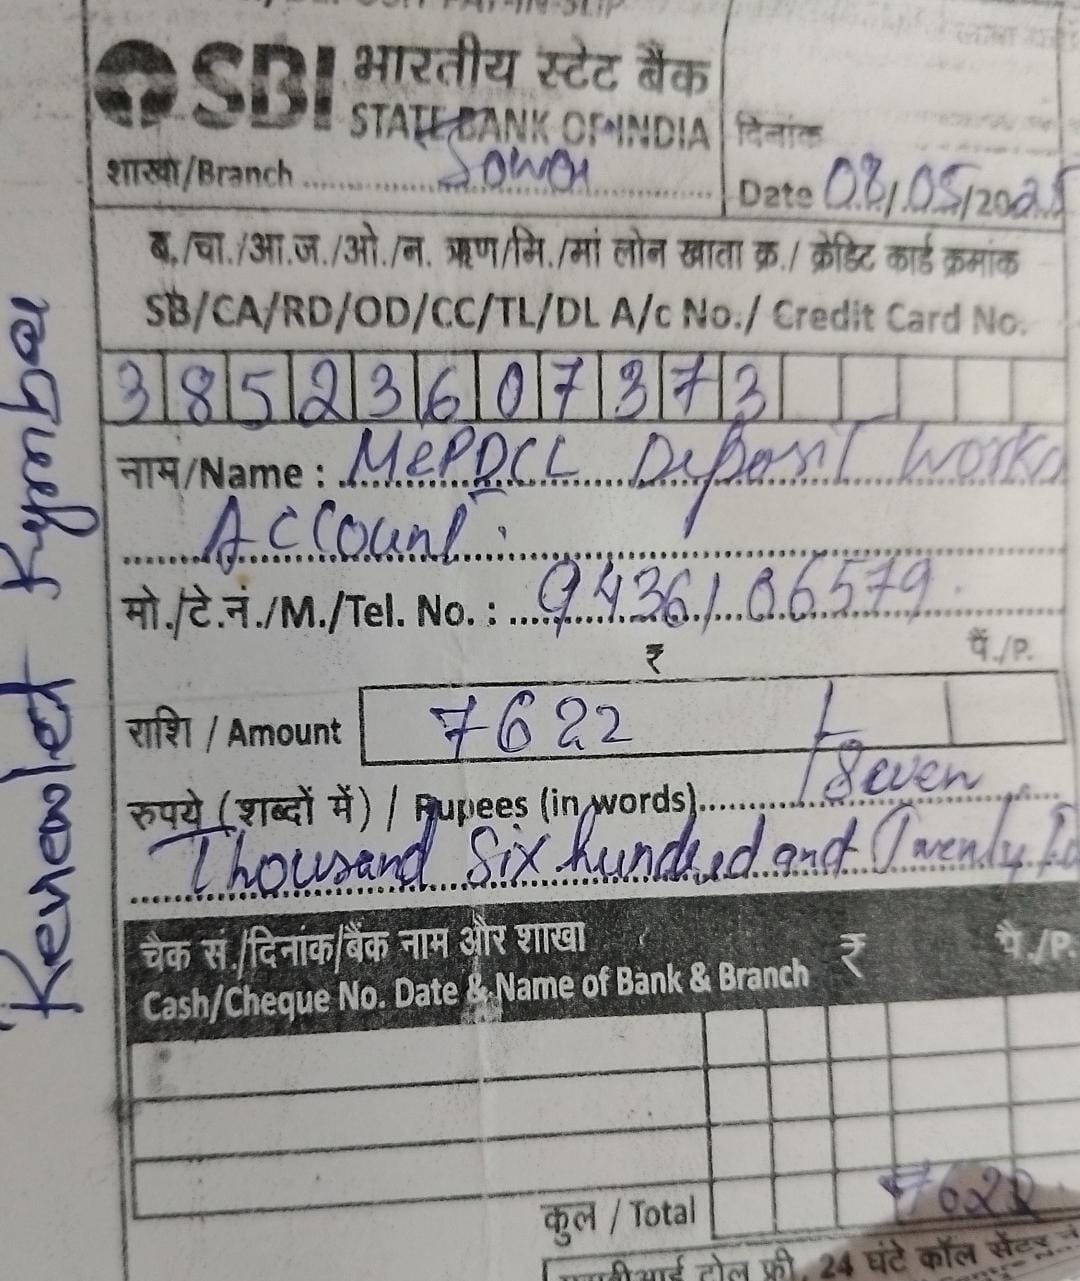 SBI भारतीय स्टेट बैंक
STATE BANK OF INDIA
शाखा/Branch Jowai
दिनांक
Date 08/05/2025
ब./चा./आ.ज./ओ./न. ऋण/मि./मां लोन खाता क्र./ क्रेडिट कार्ड क्रमांक
SB/CA/RD/OD/CC/TL/DL A/c No./ Credit Card No.
38523607373
नाम/Name : MePDCL Deposit Works
Account
मो./टे.नं./M./Tel. No. : 9436106579
₹ पै./P.
राशि / Amount 7622
रुपये (शब्दों में) / Rupees (in words) Seven
Thousand Six hundred and Twenty
चैक सं./दिनांक/बैंक नाम और शाखा ₹ पै./P.
Cash/Cheque No. Date & Name of Bank & Branch
कुल / Total 7622
24 घंटे कॉल सेंटर
Kenewlet Kynbar